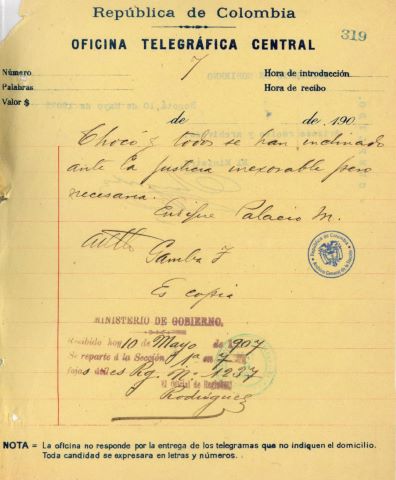 República de Colombia
OFICINA TELEGRÁFICA CENTRAL
319
7
Número
Palabras
Valor $
Hora de introducción
Hora de recibo
de de 190
Chocó y todos se han inclinado
ante la justicia inexorable pero
necesaria.
Enrique Palacio M.
Gamba J
Es copia
República de Colombia
MINISTERIO DE GOBIERNO.
Recibido hoy 10 de Mayo de 1907
Se reparte á la Sección 1ª en 7
fojas útiles Rg. Nº 1237
El Oficial de Registro
Rodríguez
NOTA = La oficina no responde por la entrega de los telegramas que no indiquen el domicilio.
Toda candidad se expresara en letras y números.